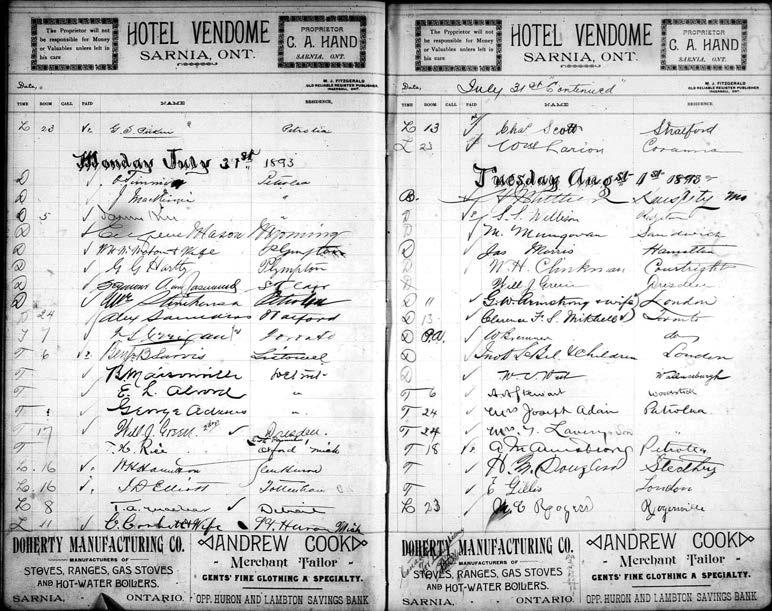 The Proprietor will not
be responsible for Money
or Valuables unless left in
his care
HOTEL VENDOME
SARNIA, ONT.
PROPRIETOR
C. A. HAND
SARNIA, ONT.
Date,
M. J. FITZGERALD
OLD RELIABLE REGISTER PUBLISHER
INGERSOLL, ONT.
TIME ROOM CALL PAID NAME RESIDENCE,
L 23 Petrolia
Monday July 31st 1893
D Petrolea
D MacKenzie "
D 5 "
D Eugene Mason Wyoming
D & Wife Plympton
D G G Hartz Plympton
D
D Stinchensen Petrolea
D 24 Alex Saunders Watford
T 7 Toronto
T 6 Benj B
T B Marsonville Detroit
T E. L. Alvord "
T George Adams "
T 17 Will J. Green Dresden
T T. H. Rice Oxford Mich
L 16 W H Hamilton Glen Huron
L 16 J D Elliott Tottenham
L 8 Detroit
L 11 C. Corbett & Wife Pt. Huron Mich
DOHERTY MANUFACTURING CO.
MANUFACTURERS OF
STOVES, RANGES, GAS STOVES
AND HOT-WATER BOILERS.
SARNIA, ONTARIO.
ANDREW COOK
Merchant Tailor
GENTS' FINE CLOTHING A SPECIALTY.
OPP. HURON AND LAMBTON SAVINGS BANK
The Proprietor will not
be responsible for Money
or Valuables unless left in
his care
HOTEL VENDOME
SARNIA, ONT.
PROPRIETOR
C. A. HAND
SARNIA, ONT.
Date, July 31st "Continued"
M. J. FITZGERALD
OLD RELIABLE REGISTER PUBLISHER
INGERSOLL, ONT.
TIME ROOM CALL PAID NAME RESIDENCE.
L 13 Chas Scott Stratford
L 23 Corunna
Tuesday Augst 1st 1893
B. Kans City Mo
D J. S. Willson
D M. Mungovan Sandwich
D Jas Morris Hamilton
D W. H. Clinkman Courtright
D Will J Green Dresden
D 11 G. W. Armstrong & wife London
D 13 Clarence F. S. Mitchell Toronto
D P.A. W Bremner do
D & Children London
D W. C. West Wallaceburgh
T 6 Stewart Woodstock
T 24 Mrs Joseph Adair Petrolea
T 24 Mrs "
T 18 A M Armstrong Petrolea
T H. M. Douglass Strathroy
T E Gillies London
L 23 Rogers Rogerville
DOHERTY MANUFACTURING CO.
MANUFACTURERS OF
STOVES, RANGES, GAS STOVES
AND HOT-WATER BOILERS.
SARNIA, ONTARIO.
ANDREW COOK
Merchant Tailor
GENTS' FINE CLOTHING A SPECIALTY.
OPP. HURON AND LAMBTON SAVINGS BANK